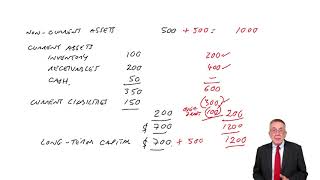 NON-CURRENT ASSETS 500 + 500 = 1000
CURRENT ASSETS
INVENTORY 100 200 ✓
RECEIVABLES 200 400 ✓
CASH 50 –
350 600
CURRENT LIABILITIES 150 (300)
200 (100) 200
$ 700 1200
LONG-TERM CAPITAL $ 700 + 500 1200